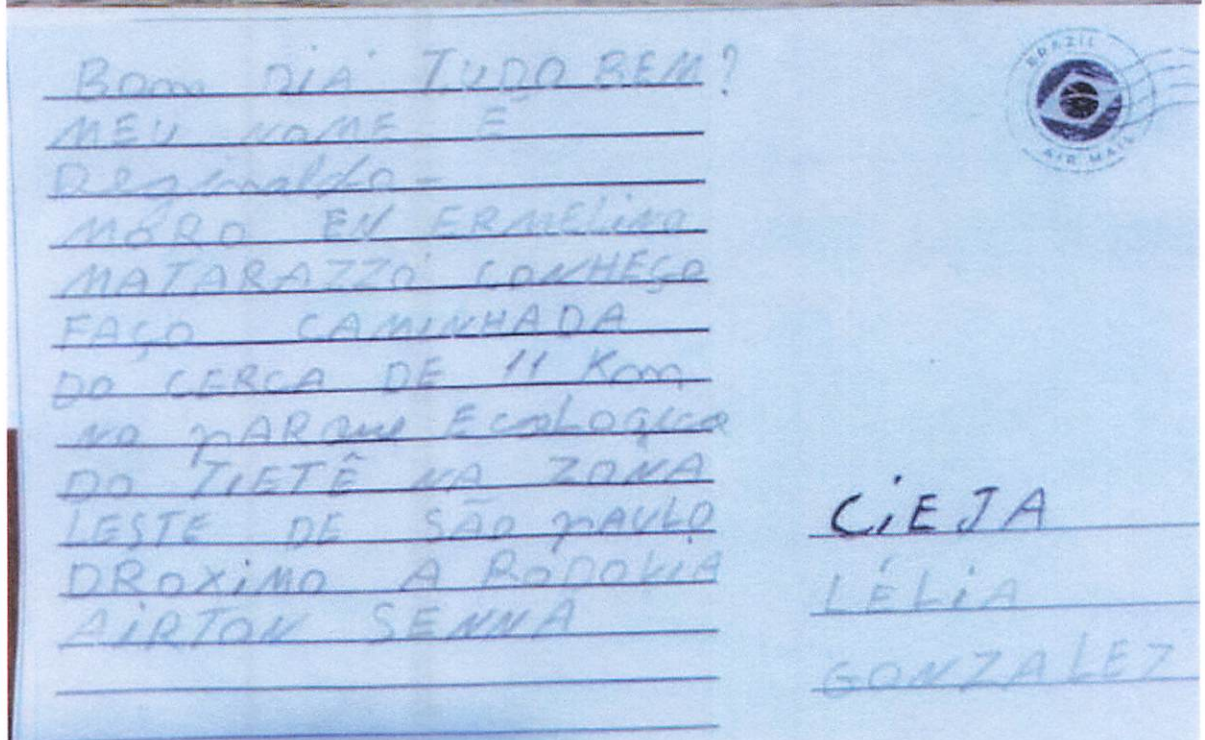 Bom DIA TUDO BEM?
MEU NOME É
Deginaldo-
MORO EN ERMELINO
MATARAZZO CONHEÇO
FAÇO CAMINHADA
DO CERCA DE 11 Km
NO pARque EcoLOgico
DO TIETÊ NA ZONA
LESTE DE SÃO pAULO
PROXIMO A RODOVIA
AiRTON SENNA
BRAZIL
AIR MAIL
CiEJA
LÉLiA
GONZALEZ